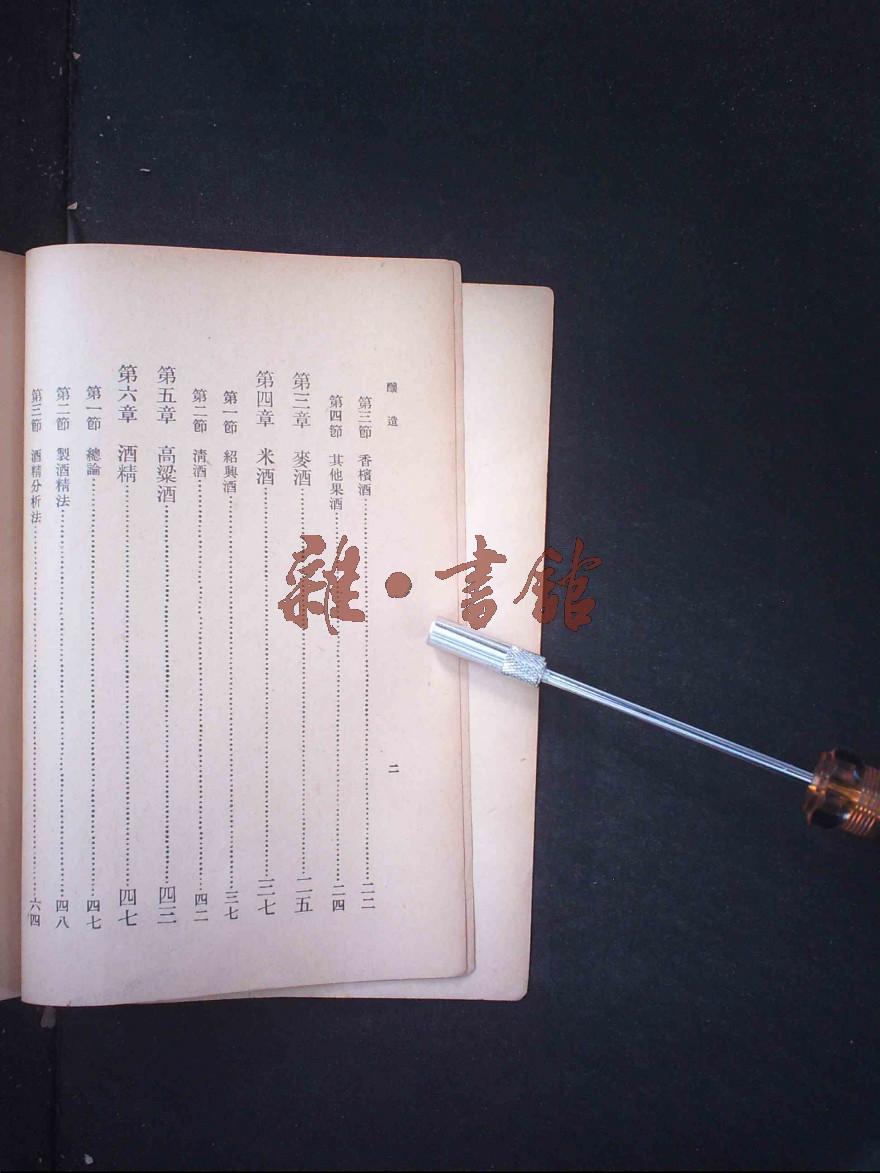 釀造
二
第三節 香檳酒 二二
第四節 其他果酒 二四
第三章 麥酒 二五
第四章 米酒 三七
第一節 紹興酒 三七
第二節 清酒 四二
第五章 高粱酒 四三
第六章 酒精 四七
第一節 總論 四七
第二節 製酒精法 四八
第三節 酒精分析法 六四
雜·書館